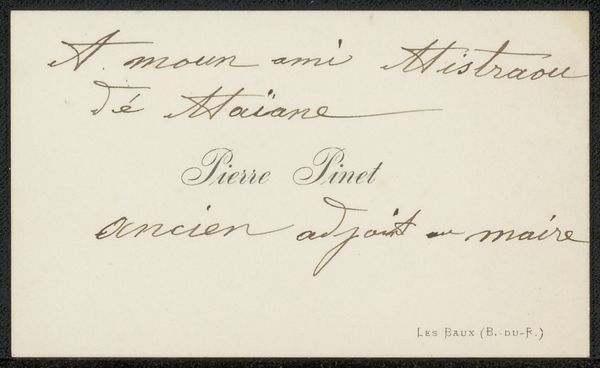 A moun ami Mistraou
dé Maïane
Pierre Pinet
ancien adjoint au maire
LES BAUX (B.-DU-R.)